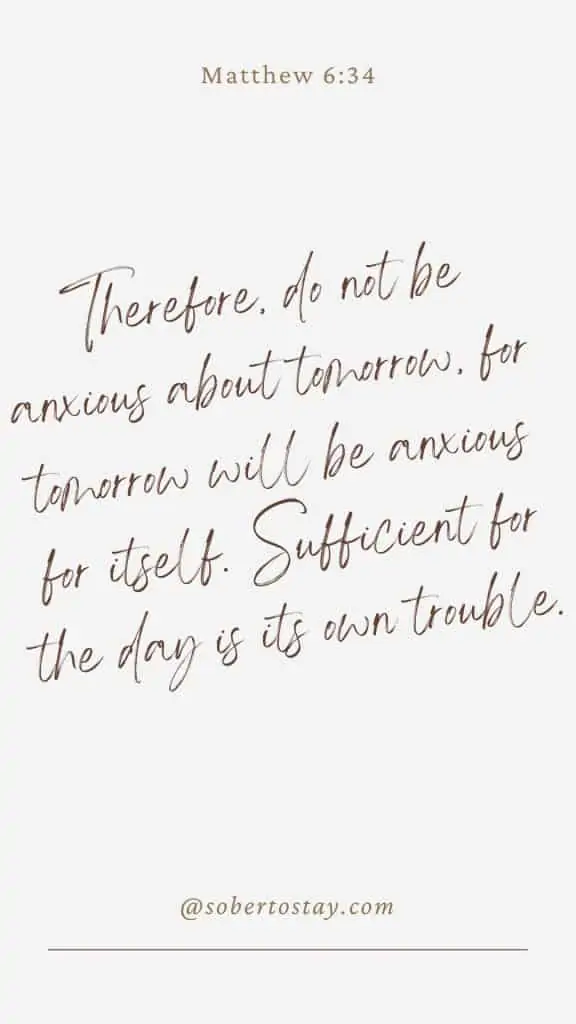 Matthew 6:34
Therefore, do not be
anxious about tomorrow, for
tomorrow will be anxious
for itself. Sufficient for
the day is its own trouble.
@sobertostay.com